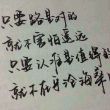 只要路是对的
就不害怕遥远
只要认准是值得的
就不在乎沧海桑